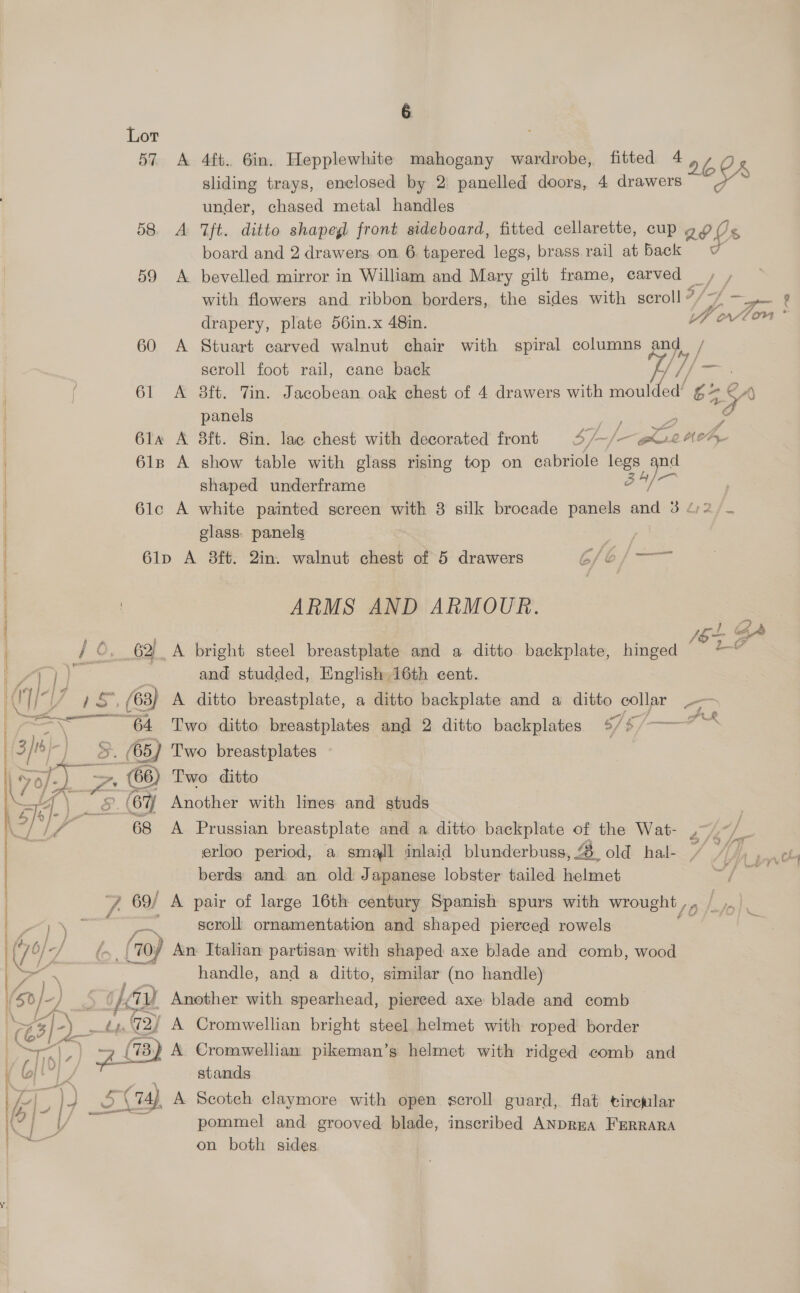 6
Lot
57 A 4ft. 6in. Hepplewhite mahogany wardrobe, fitted 4
sliding trays, enclosed by 2 panelled doors, 4 drawers
under, chased metal handles
58 A 7ft. ditto shaped front sideboard, fitted cellarette, cup
board and 2 drawers on 6 tapered legs, brass rail at back
59 A bevelled mirror in William and Mary gilt frame, carved
with flowers and ribbon borders, the sides with scroll
drapery, plate 56in.x 48in.
60 A Stuart carved walnut chair with spiral columns and
scroll foot rail, cane back
61 A 3ft. 7in. Jacobean oak chest of 4 drawers with moulded
panels
61A A 3ft. 8in. lac chest with decorated front 5/-/-
61B A show table with glass rising top on cabriole legs and
shaped underframe 34/-
61c A white painted screen with 3 silk brocade panels and 3 42/-
glass panels
61D A 3ft. 2in. walnut chest of 5 drawers 6/6/—
ARMS AND ARMOUR.
10. 62 A bright steel breastplate and a ditto backplate, hinged
and studded, English 16th cent.
15. (63) A ditto breastplate, a ditto backplate and a ditto collar
64 Two ditto breastplates and 2 ditto backplates 5/5/—
5. (65) Two breastplates
7. (66) Two ditto
8. (67) Another with lines and studs
68 A Prussian breastplate and a ditto backplate of the Wat-
erloo period, a small inlaid blunderbuss, 3 old hal-
berds and an old Japanese lobster tailed helmet
7. 69 A pair of large 16th century Spanish spurs with wrought
scroll ornamentation and shaped pierced rowels
(70/-) 6. (70) An Italian partisan with shaped axe blade and comb, wood
handle, and a ditto, similar (no handle)
(50/-) (71) Another with spearhead, pierced axe blade and comb
(63/-) (72) A Cromwellian bright steel helmet with roped border
7 (73) A Cromwellian pikeman's helmet with ridged comb and
stands
5 (74) A Scotch claymore with open scroll guard, flat circular
pommel and grooved blade, inscribed ANDREA FERRARA
on both sides